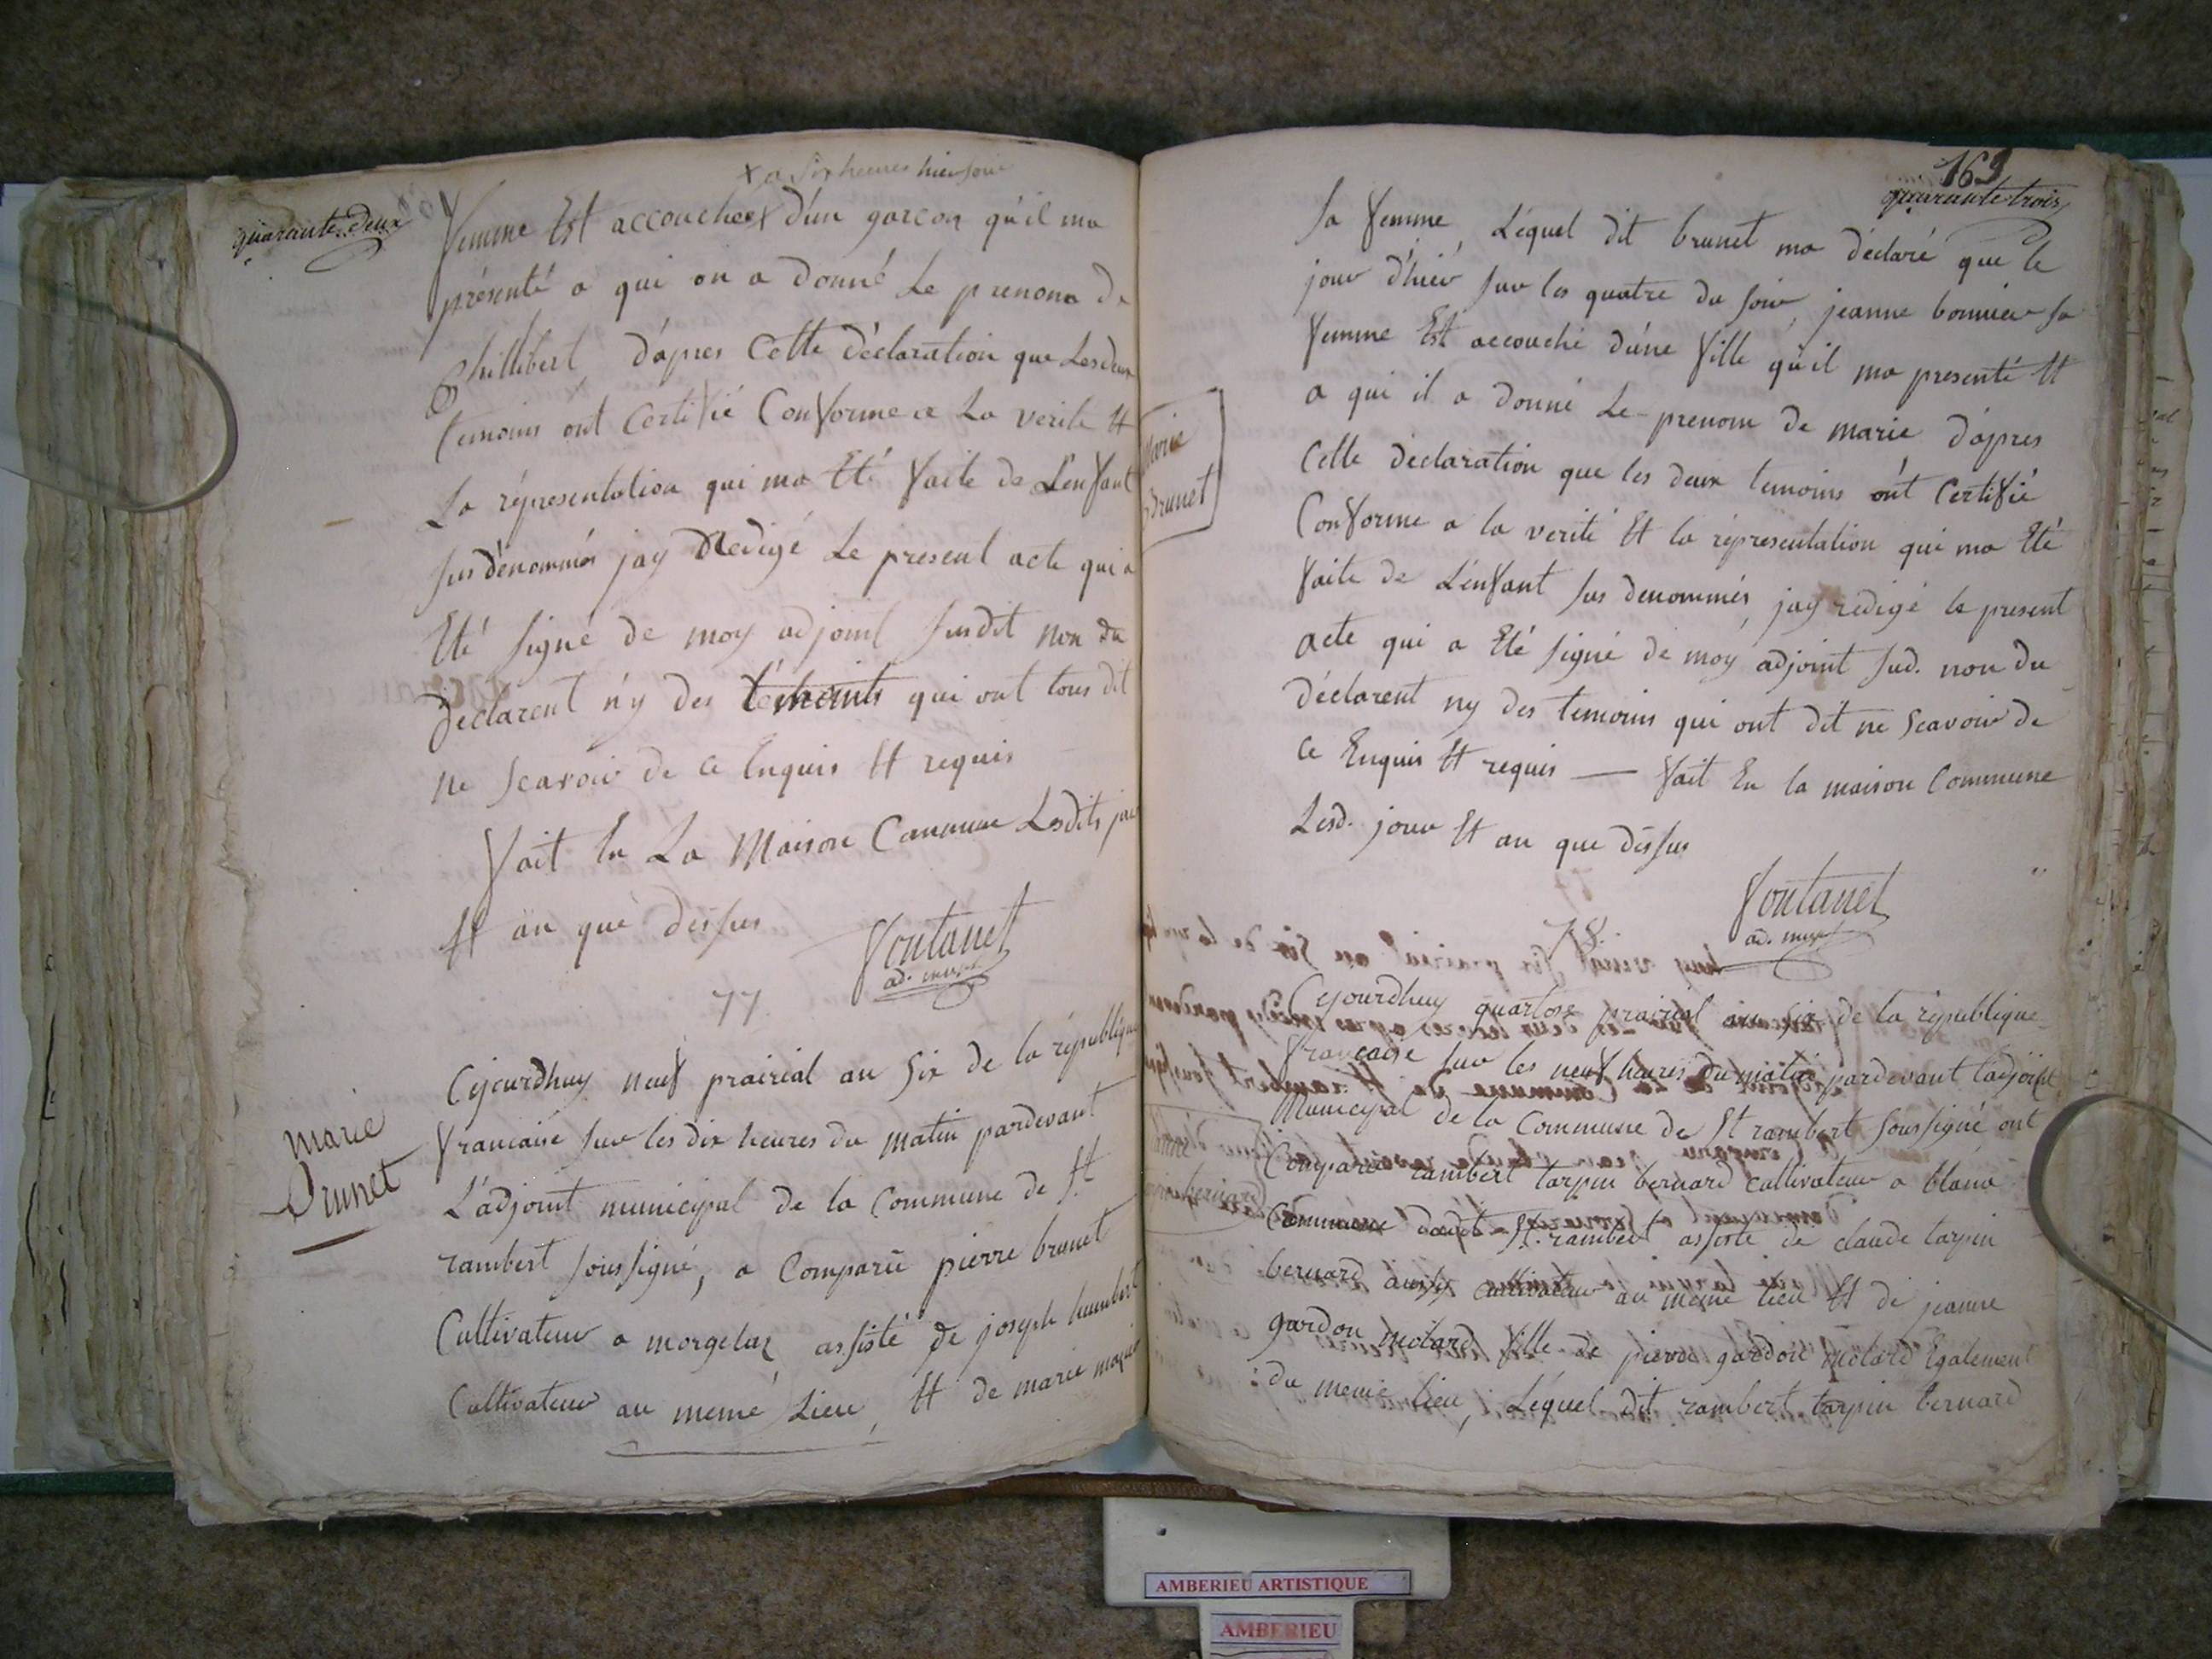 quarante deux
x a six heures hier soir
femme Est accouchee x d'un garcon qu'il ma
présenté a qui on a donné Le prenom de
Phillibert d'apres Cette déclaration que Les deux
temoins ont Certifié Conforme a La verite Et
La répresentation qui ma Eté faite de L'enfant
sus dénommés jay Redigé Le present acte qui a
Eté signé de moy adjoint susdit non du
declarent n'y des témoints qui ont tous dit
ne scavoir de ce Enquis Et requis
fait En La Maison Commune Lesdits jour
Et an que dessus
fontanet
ad. mupl
77
marie
Brunet
Cejourdhuy neuf prairial an Six de la république
francaise sur les dix heures du matin pardevant
L'adjoint municipal de la Commune de St
rambert soussigné, a Comparu pierre brunet
Cultivateur a morgelaz assisté de joseph humbert
Cultivateur au memé Lieu, Et de marie
163
quarante trois
Marie
Brunet
sa femme Léquel dit brunet ma déclaré que le
jour d'hier sur les quatre du soir, jeanne bonnier sa
femme Est accouché d'une fille qu'il ma presenté Et
a qui il a donné Le prenom de marie d'apres
Cette déclaration que les deux temoins ont Certifié
Conforme a la verité Et la répresentation qui ma Eté
faite de L'enfant sus denommés, jay redigé le present
acte qui a Eté signé de moy adjoint sud. non du
déclarent ny des temoins qui ont dit ne scavoir de
ce Enquis Et requis — fait En la maison Commune
Lesd. jour Et an que dessus
fontanet
ad. mupl
78.
Cejourdhuy quartose prairial an six de la république
francaise sur les neuf heures du matin pardevant l'adjoint
Municipal de la Commune de St rambert soussigné ont
Comparu rambert tarpin bernard cultivateur a blana
Commune dudit St. rambert assisté de claude tarpin
bernard aussy cultivateur au meme lieu Et de jeanne
gardon molard fille de pierre gardon molard Egalement
du meme lieu, Léquel dit rambert tarpin bernard
AMBERIEU ARTISTIQUE
AMBERIEU